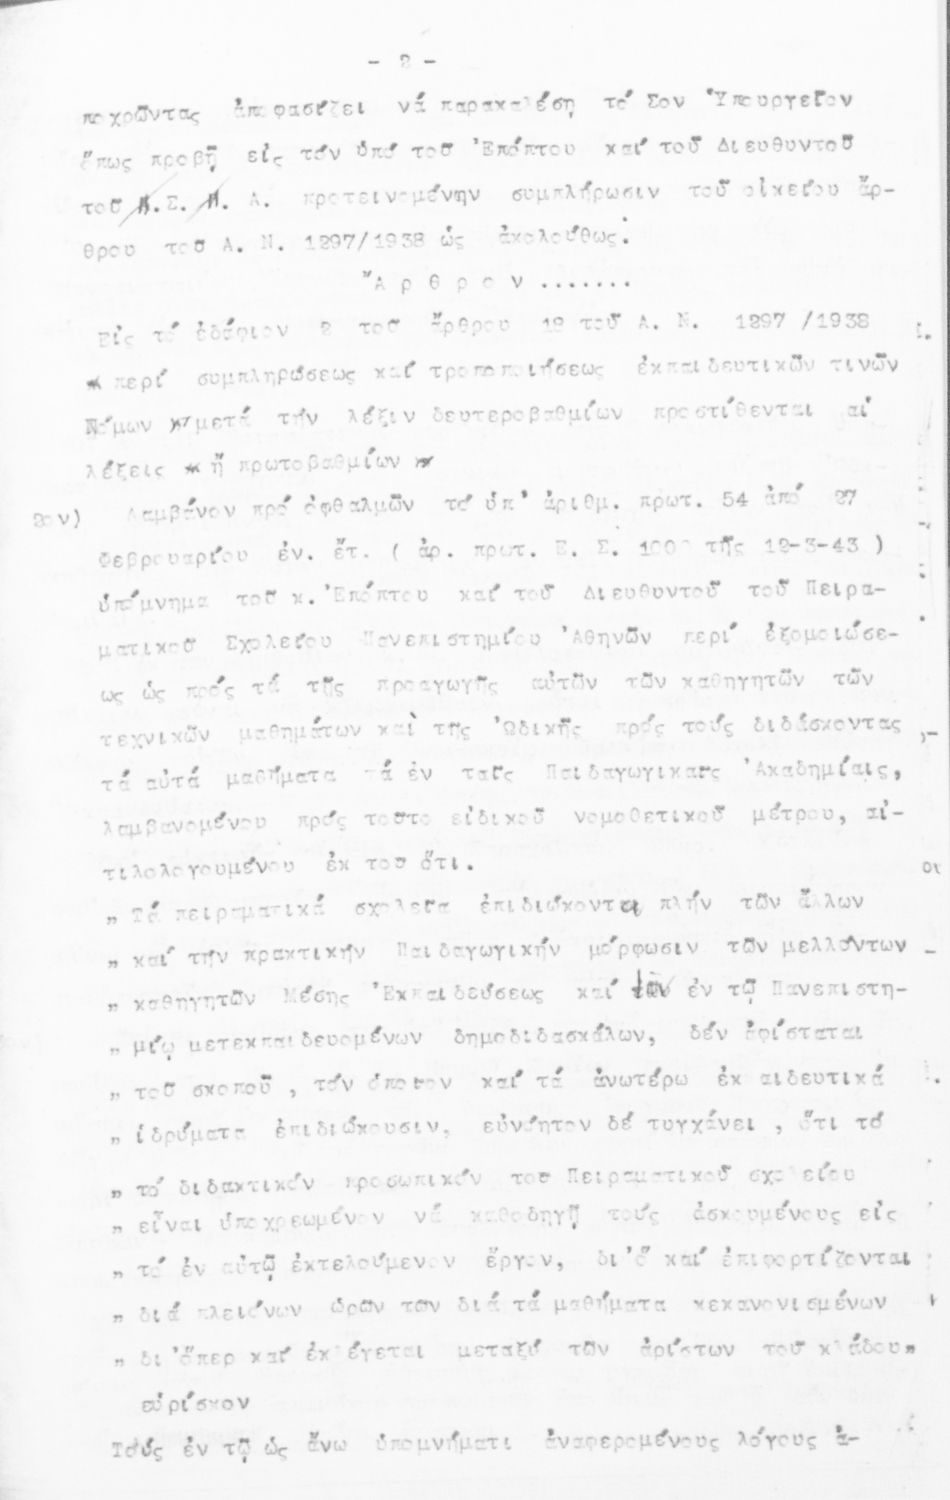 - 2 -
ποχρῶντας ἀποφασίζει νά παρακαλέσῃ τό Σον Ὑπουργεῖον
ὅπως προβῇ εἰς τόν ὑπό τοῦ Ἐπόπτου καί τοῦ Διευθυντοῦ
τοῦ Π.Σ. Π. Α. προτεινομένην συμπλήρωσιν τοῦ οἰκείου ἄρ-
θρου τοῦ Α. Ν. 1297/1938 ὡς ἀκολούθως:
"Α ρ θ ρ ο ν .......
Εἰς τό ἐδάφιον 2 τοῦ ἄρθρου 12 τοῦ Α. Ν. 1297 /1938
« περί συμπληρώσεως καί τροποποιήσεως ἐκπαιδευτικῶν τινῶν
Νόμων » μετά τήν λέξιν δευτεροβαθμίων προστίθενται αἱ
λέξεις « ἤ πρωτοβαθμίων »
2ον) Λαμβάνον πρό ὀφθαλμῶν τό ὑπ' ἀριθμ. πρωτ. 54 ἀπό 27
Φεβρουαρίου ἐν. ἔτ. ( ἀρ. πρωτ. Ε. Σ. τῆς 12-3-43 )
ὑπόμνημα τοῦ κ. Ἐπόπτου καί τοῦ Διευθυντοῦ τοῦ Πειρα-
ματικοῦ Σχολείου Πανεπιστημίου Ἀθηνῶν περί ἐξομοιώσε-
ως ὡς πρός τά τῆς προαγωγῆς αὐτῶν τῶν καθηγητῶν τῶν
τεχνικῶν μαθημάτων καὶ τῆς Ὠδικῆς πρός τούς διδάσκοντας
τά αὐτά μαθήματα τά ἐν ταῖς Παιδαγωγικαῖς Ἀκαδημίαις,
λαμβανομένου πρός τοῦτο εἰδικοῦ νομοθετικοῦ μέτρου, αἰ-
τιλολογουμένου ἐκ τοῦ ὅτι.
„ Τά πειραματικά σχολεῖα ἐπιδιώκοντα πλήν τῶν ἄλλων
„ καί τήν πρακτικήν Παιδαγωγικήν μόρφωσιν τῶν μελλόντων
„ καθηγητῶν Μέσης Ἐκπαιδεύσεως καί τῶν ἐν τῷ Πανεπιστη-
„ μίῳ μετεκπαιδευομένων δημοδιδασκάλων, δέν ἀφίσταται
„ τοῦ σκοποῦ , τόν ὁποῖον καί τά ἀνωτέρω ἐκ αιδευτικά
„ ἱδρύματα ἐπιδιώκουσιν, εὐνόητον δέ τυγχάνει , ὅτι τό
„ τό διδακτικόν προσωπικόν τοῦ Πειραματικοῦ σχολείου
„ εἶναι ὑποχρεωμένον νά καθοδηγῇ τούς ἀσκουμένους εἰς
„ τό ἐν αὐτῷ ἐκτελούμενον ἔργον, δι'ὅ καί ἐπιφορτίζονται
„ διά πλειόνων ὡρῶν τῶν διά τά μαθήματα κεκανονισμένων
„ δι'ὅπερ καί ἐκλέγεται μεταξύ τῶν ἀρίστων τοῦ κλάδου„
εὑρίσκον
Τούς ἐν τῷ ὡς ἄνω ὑπομνήματι ἀναφερομένους λόγους ἀ-